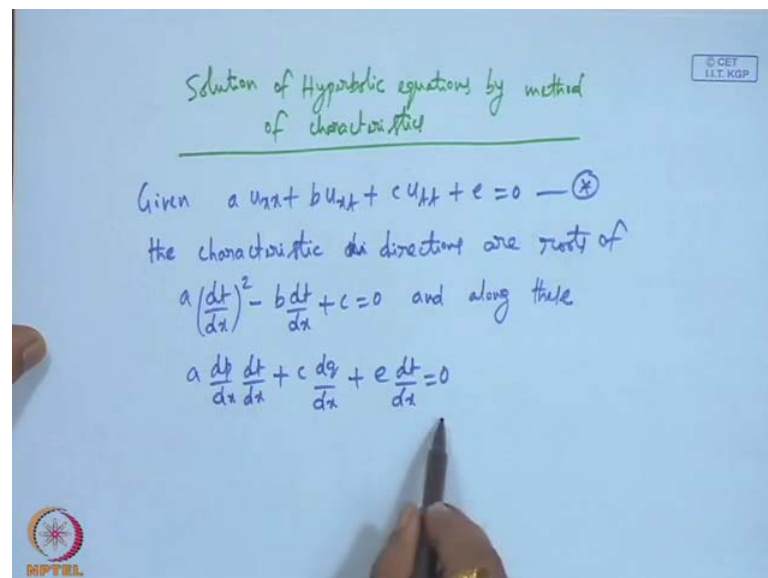 Solution of Hyperbolic equations by method
of characteristics
© CET
I.I.T. KGP
Given a u_xx + b u_xt + c u_tt + e = 0 — (*)
the characteristic directions are roots of
a (dt/dx)² - b dt/dx + c = 0 and along these
a dp/dx dt/dx + c dq/dx + e dt/dx = 0
NPTEL